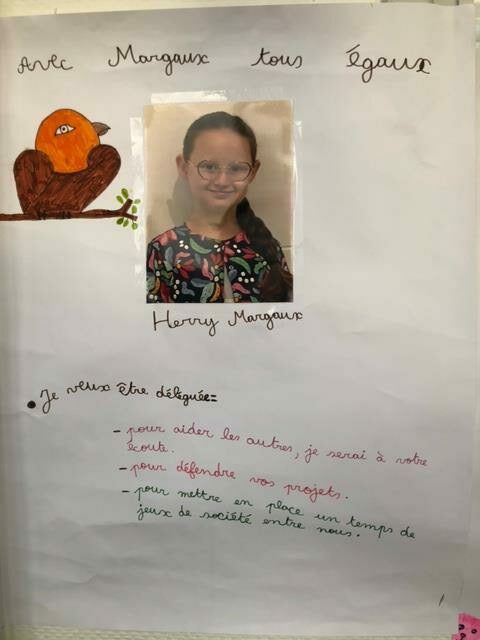 Avec Margaux tous égaux
Herry Margaux
• Je veux être déléguée=
- pour aider les autres, je serai à votre
écoute.
- pour défendre vos projets.
- pour mettre en place un temps de
jeux de société entre nous.